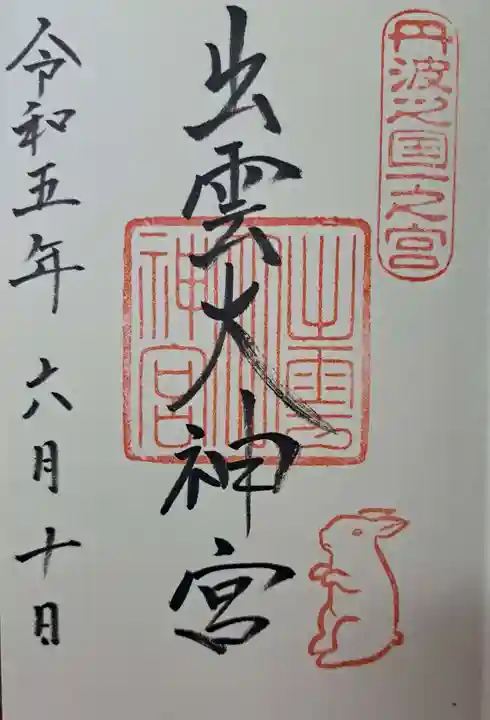 丹波之国一之宮
出雲大神宮
出雲大神宮
令和五年 六月十日